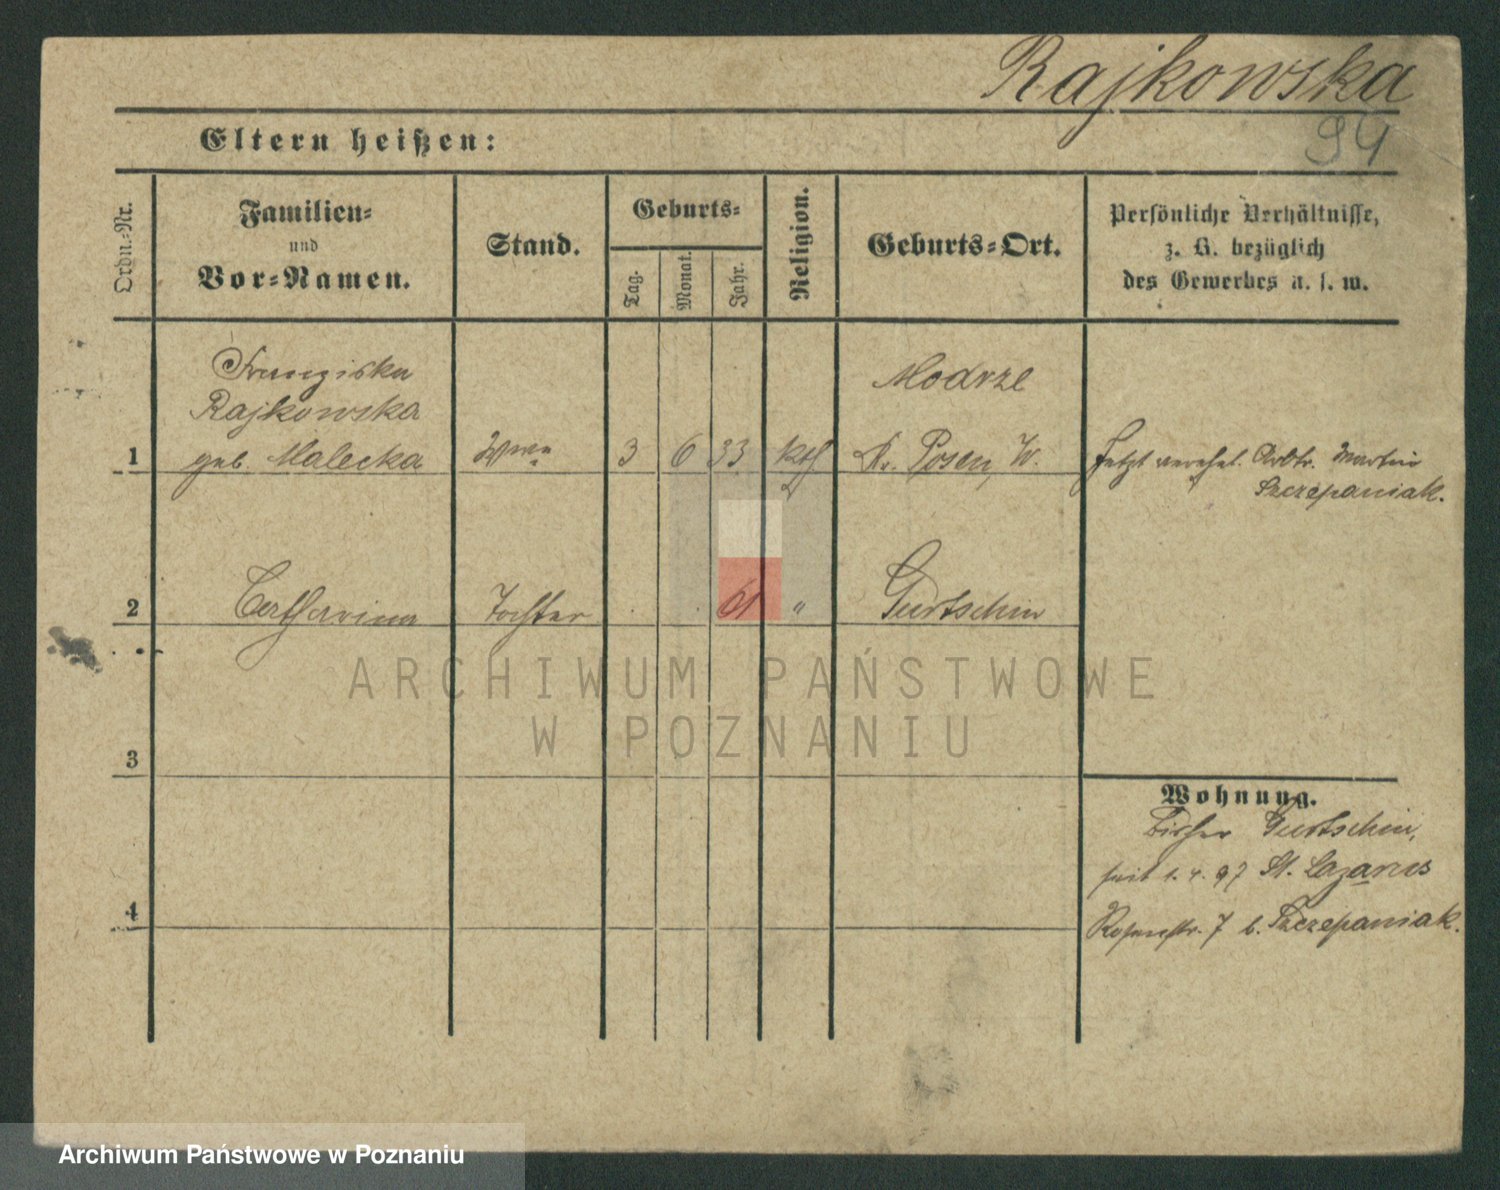 Rajkowska
94
Eltern heißen:
Ordn.-Nr.
Familien-
und
Vor-Namen.
Stand.
Geburts-
Tag.
Monat.
Jahr.
Religion.
Geburts-Ort.
Persönliche Verhältnisse,
z. B. bezüglich
des Gewerbes u. s. w.
Franziska
Rajkowska
1 geb. Malecka Wwe 3 6 33 kth
Modrze
Kr. Posen, W.
Jetzt verehel. Arbtr. Martin
Szczepaniak.
2 Catharina Tochter 61 " Gurtschin
ARCHIWUM PAŃSTWOWE
W POZNANIU
3
Wohnung.
Bisher Gurtschin,
seit 1. 4. 97 St. Lazarus
4
Rosenstr. 7 b. Szczepaniak.
Archiwum Państwowe w Poznaniu